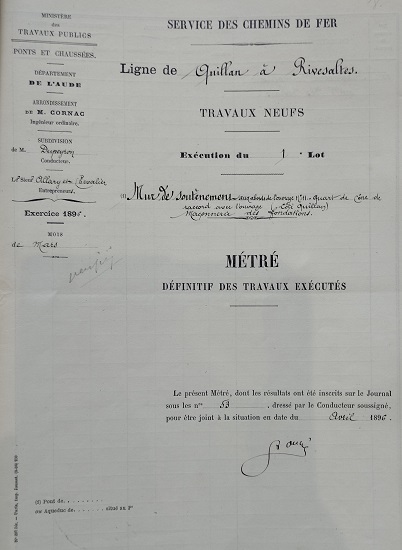 MINISTÈRE
des
TRAVAUX PUBLICS
PONTS ET CHAUSSÉES
DÉPARTEMENT
DE L'AUDE
ARRONDISSEMENT
DE M. CORNAC
Ingénieur ordinaire.
SUBDIVISION
de M.
Conducteur.
Le Sieur Allary et
Entrepreneur.
Exercice 1896.
MOIS
de Mars
SERVICE DES CHEMINS DE FER
Ligne de Quillan à Rivesaltes.
TRAVAUX NEUFS
Exécution du 1er Lot
(1) Mur de soutènement aux abords de l'ouvrage n° 11. Quart de cône de
raccord avec l'ouvrage (Côté Quillan)
Maçonnerie des fondations.
MÉTRÉ
DÉFINITIF DES TRAVAUX EXÉCUTÉS
Le présent Métré, dont les résultats ont été inscrits sur le Journal
sous les nos 53, dressé par le Conducteur soussigné,
pour être joint à la situation en date du Avril 1896.
(1) Pont de
ou Aqueduc de situé au P